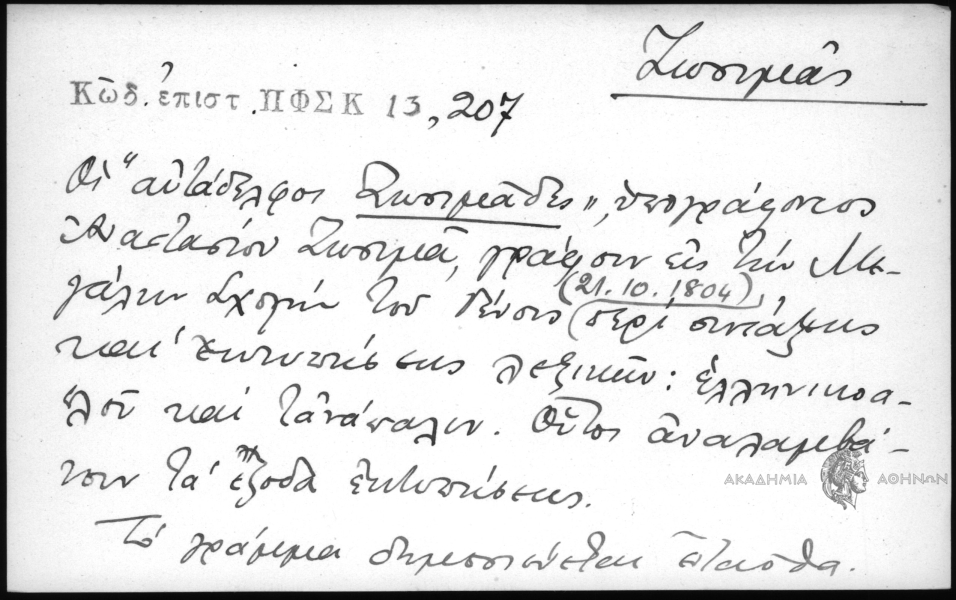 Ζωσιμᾶς
Κῶδ. ἐπιστ. ΠΦΣΚ 13, 207
Οἱ "αὐτάδελφοι Ζωσιμάδες", ὑπογράφοντος
Ἀναστασίου Ζωσιμᾶ, γράφουν εἰς τὴν Με-
γάλην Σχολὴν τοῦ Γένους (21.10.1804), περὶ συντάξεως
καὶ ἐκτυπώσεως λεξικῶν: ἑλληνικοα-
πλοῦ καὶ τἀνάπαλιν. Οὗτοι ἀναλαμβά-
νουν τὰ ἔξοδα ἐκτυπώσεως.
Τὸ γράμμα δημοσιεύεται ἐνταῦθα.
ΑΚΑΔΗΜΙΑ ΑΘΗΝΩΝ